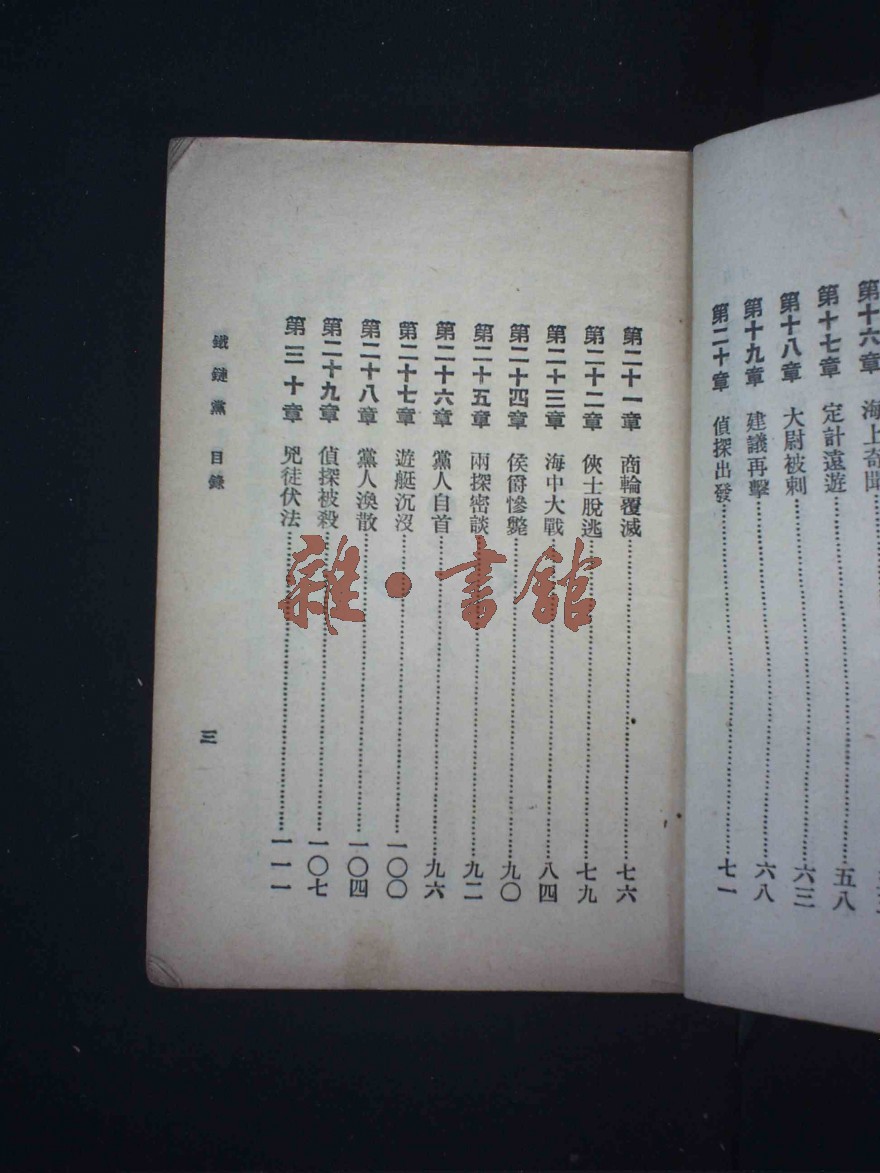 第十六章 海上奇聞
第十七章 定計遠遊……五八
第十八章 大尉被刺……六三
第十九章 建議再擊……六八
第二十章 偵探出發……七一
第二十一章 商輪覆滅……七六
第二十二章 俠士脫逃……七九
第二十三章 海中大戰……八四
第二十四章 侯爵慘斃……九〇
第二十五章 兩探密談……九二
第二十六章 黨人自首……九六
第二十七章 遊艇沉沒……一〇〇
第二十八章 黨人渙散……一〇四
第二十九章 偵探被殺……一〇七
第三十章 兇徒伏法……一一一
鐵鏈黨 目錄
三
雜·書館